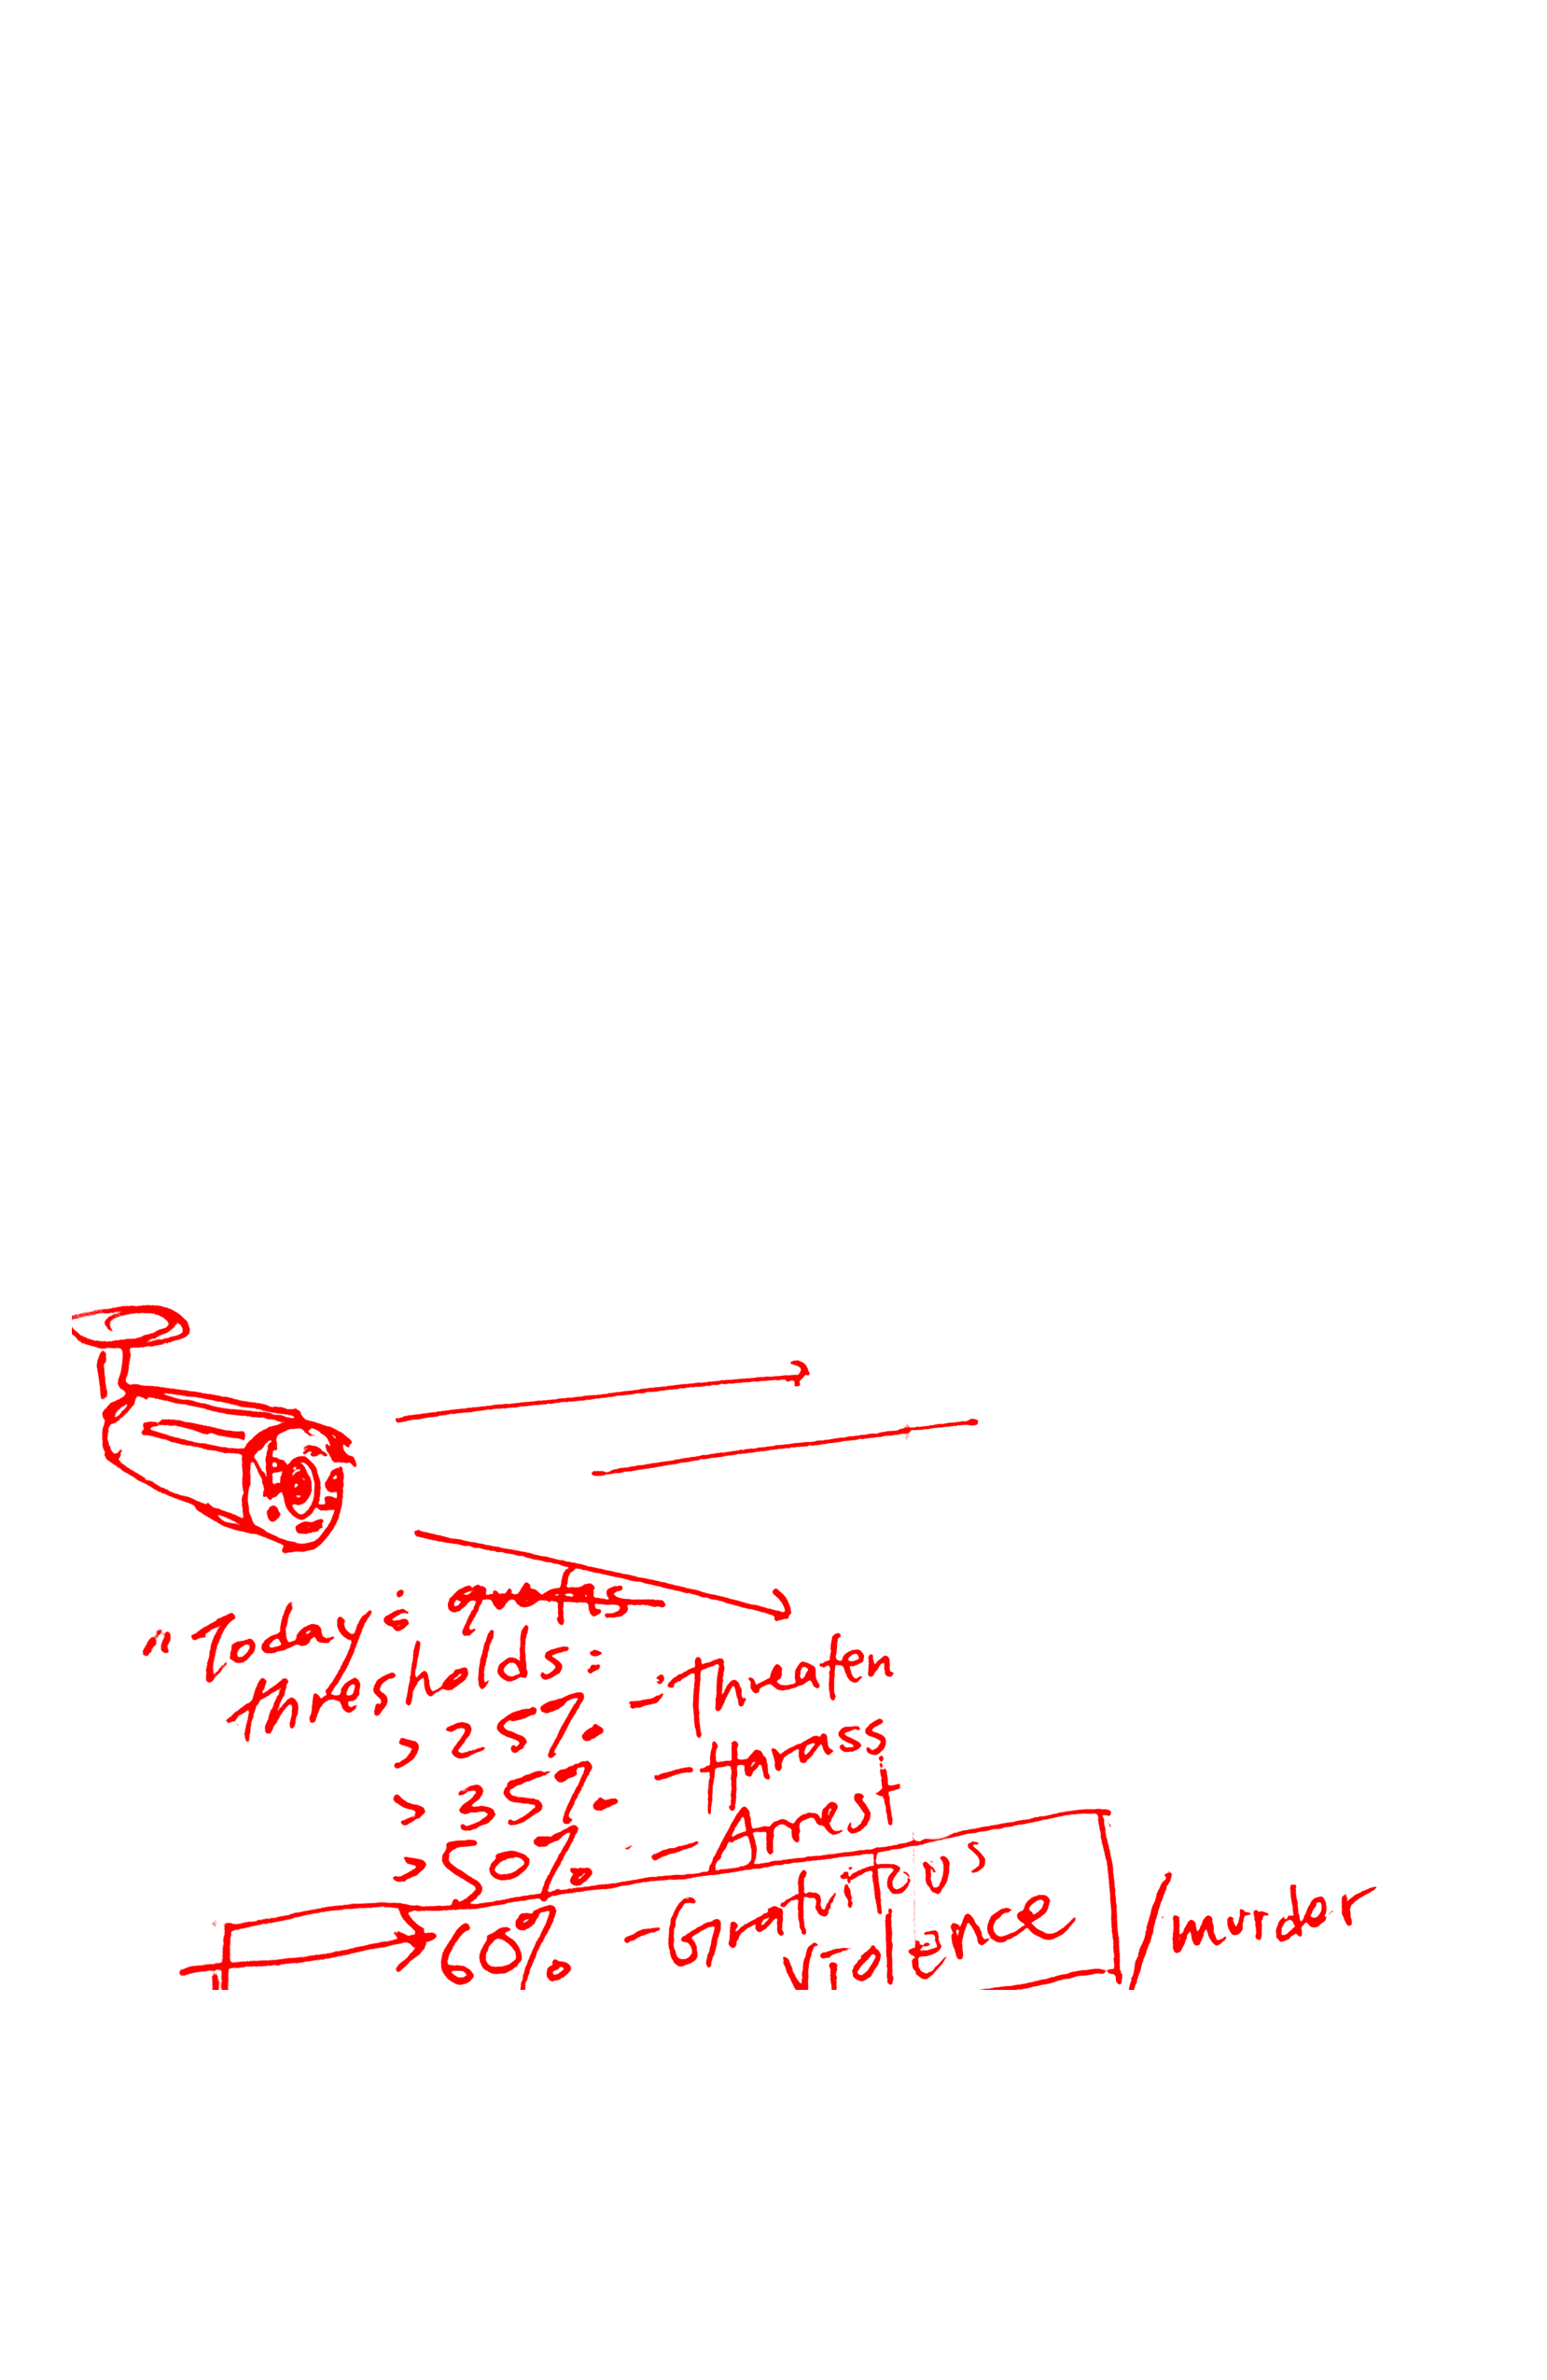 "Today's quotas
Thresholds:
> 25% - Threaten
> 35% - Harass
> 50% - Arrest
> 60% - Gratuitous
Violence / murder